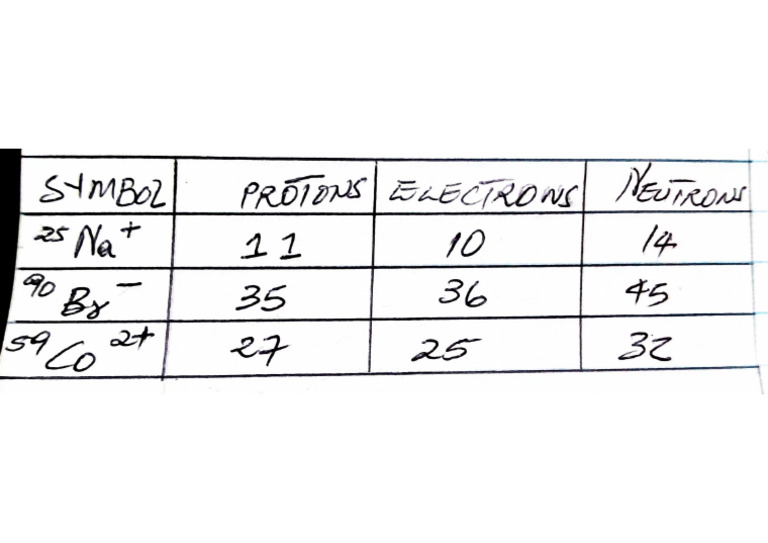 SYMBOL PROTONS ELECTRONS NEUTRONS
²⁵Na⁺ 11 10 14
⁹⁰Br⁻ 35 36 45
⁵⁹Co²⁺ 27 25 32